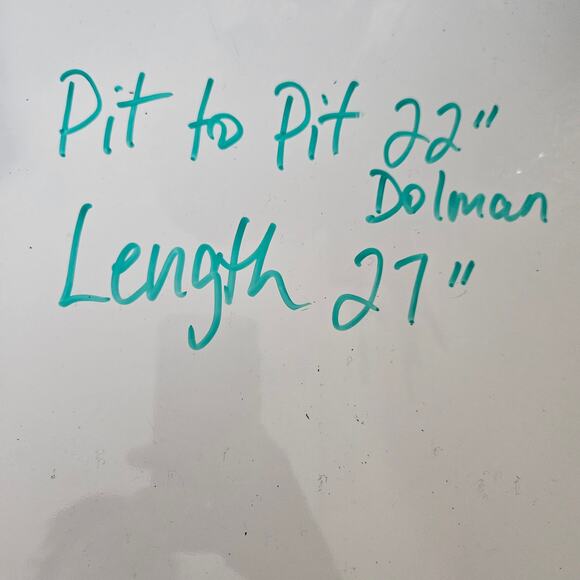 Pit to Pit 22"
Dolman
Length 27"